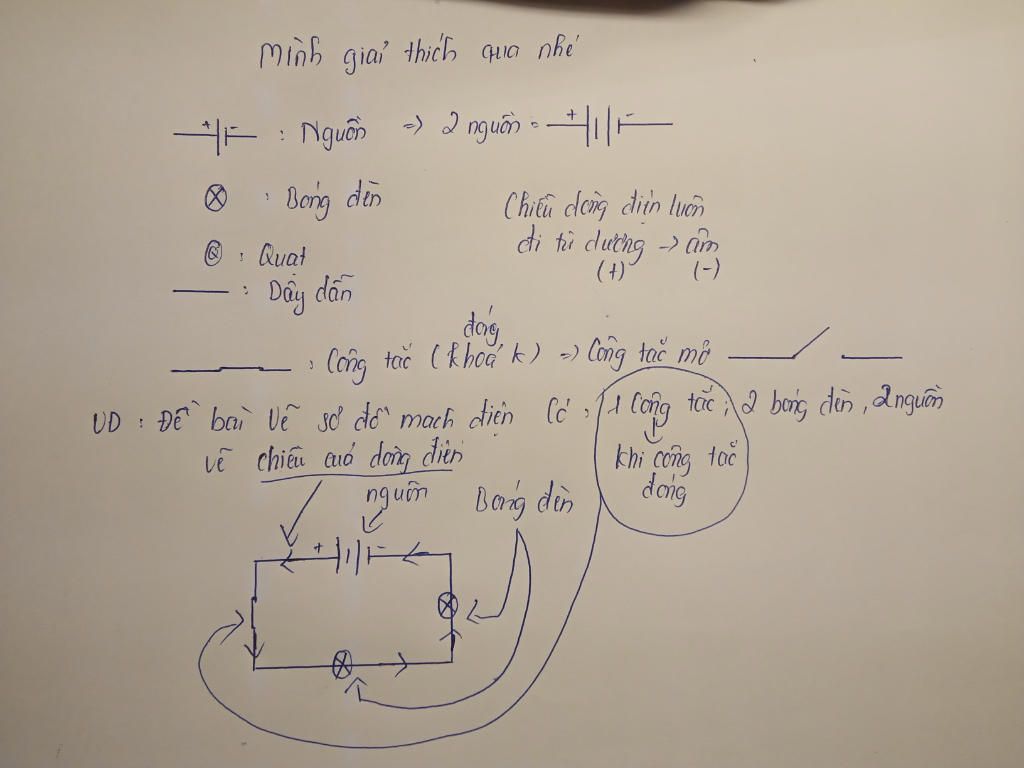 Mình giải thích qua nhé
+ - : Nguồn => 2 nguồn = + -
: Bóng đèn
: Quạt
: Dây dẫn
Chiều dòng điện luôn
đi từ dương -> âm
(+) (-)
đóng
: Công tắc (khoá k) => Công tắc mở
VD : Đề bài Vẽ sơ đồ mạch điện Có : 1 Công tắc ; 2 bóng đèn, 2 nguồn
vẽ chiều của dòng điện
khi công tắc
đóng
nguồn
Bóng đèn
+ -